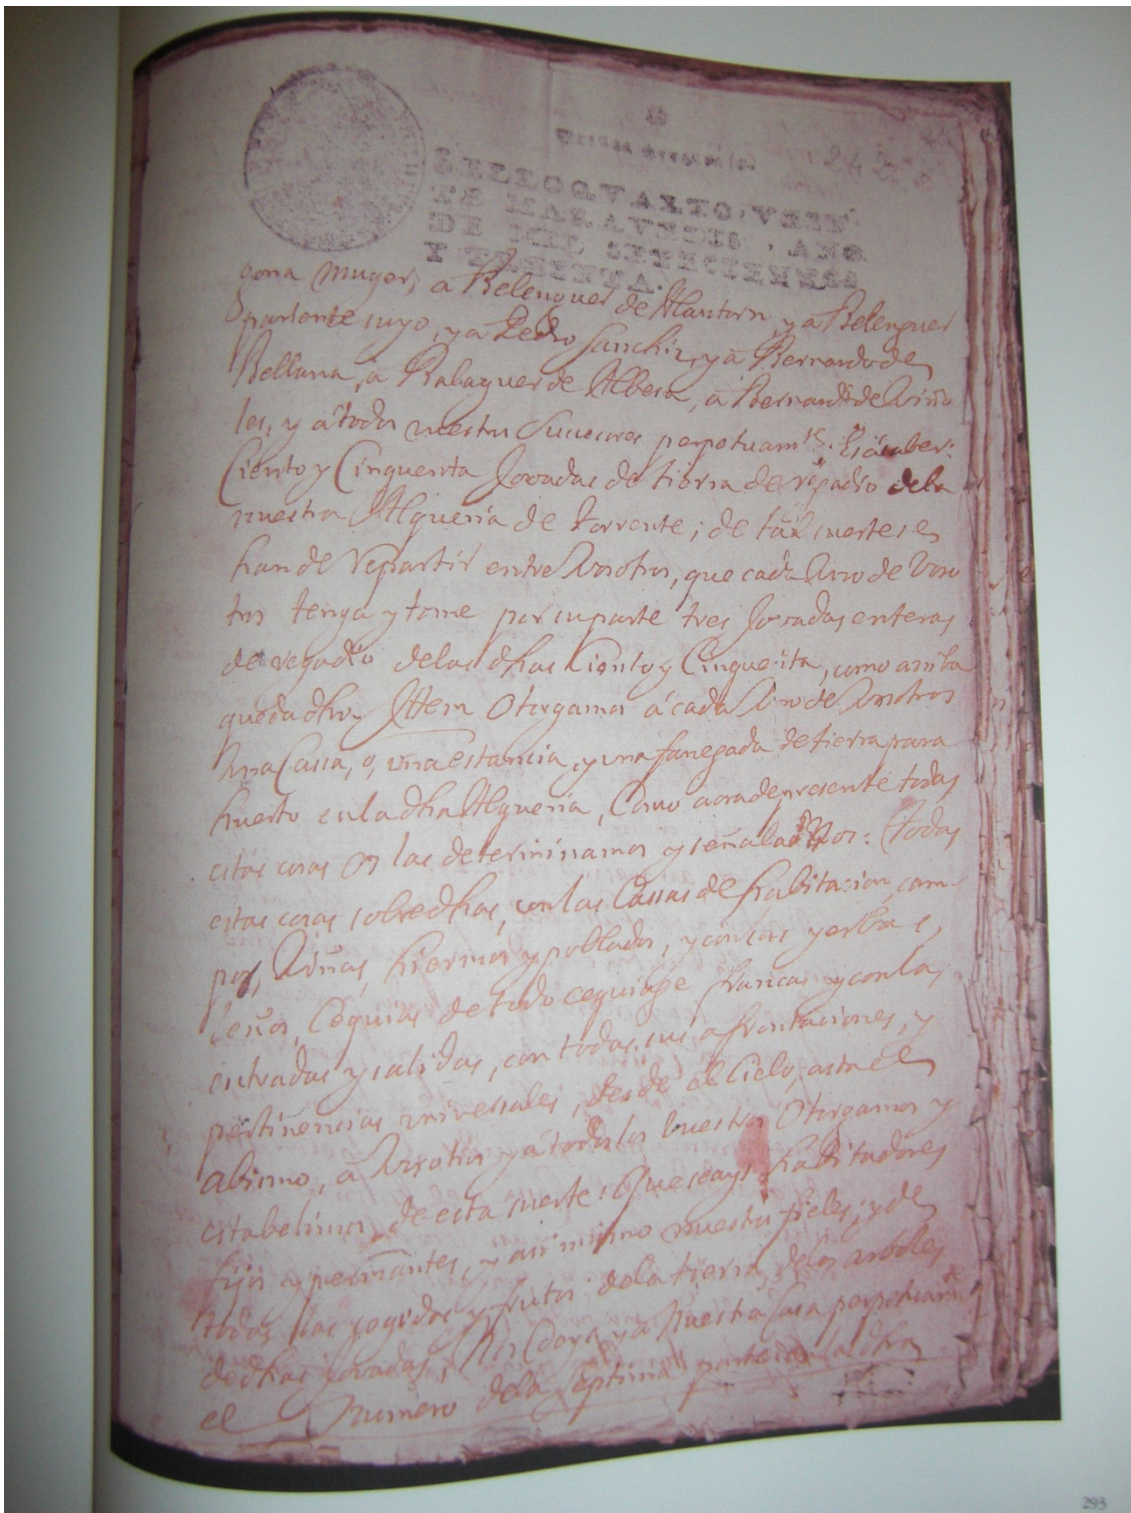 SELLO QVARTO, VEIN
TE MARAVEDIS, AÑO
DE MIL SETECIENTOS
Y TREINTA.
gona muger, a Belenguer de , y a Belenguer
pariente suyo, y a Pedro Sanchiz, y a Bernardo de
Bellana, a Balaguer de Albesa, a Bernardo de Viña
les, y á todos vuestros Sucesores perpetuamte. Es á saber:
Ciento y Cinquenta Jovadas de tierra de regadio dela
nuestra Alqueria de Torrente; de tal suerte se
han de repartir entre Vosotros, que cada Uno de Voso
tros tenga y tome por su parte tres Jovadas enteras
de regadio delas dhas Ciento y Cinquenta, como arriba
queda dho. Ittem Otorgamos á cada Uno de Vosotros
Una Cassa, o, una estancia, y una fanegada de tierra para
huerto enla dha Alqueria, Como aora de presente todas
estas cosas os las determinamos y señalamos: Todas
estas cosas sobredhas, con las Cassas de habitacion, cam
pos, Viñas, hiermos y poblados, y con sus yerbas,
leños, Cequias de todo cequiage francas y con las
entradas y salidas, con todas sus afrontaciones, y
pertinencias universales, desde el Cielo, asta el
abismo, a Vosotros y a todos los vuestros Otorgamos y
establimos, de esta suerte: Que seays habitadores
fijos y permanentes, y asi mismo nuestros fieles; y de
todas las cogidas y frutos dela tierra, delos arboles
de dhas jovadas, Nos Deys, y a Nuestra Casa perpetuamte
el Numero dela Septima parte
293